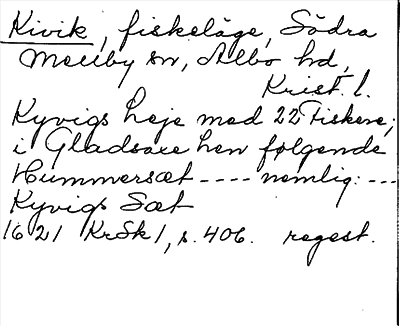 Kivik, fiskeläge, Södra
Mellby sn, Albo hd,
Krist. l.
Kyvigs leje med 22 Fiskere;
i Gladsaxe len følgende
Hummersæt ---- nemlig: ---
Kyvigs Sæt
1621 KrSk 1, s. 406. regest.